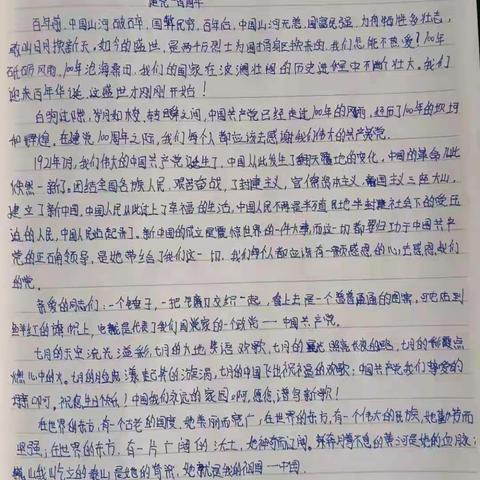 建党一百周年
百年前,中国山河破碎,国弊民穷,百年后,中国山河无恙,国富民强,为有牺牲多壮志,
敢叫日月换新天,如今的盛世,是两千万烈士为国捐躯换来的,我们怎能不热爱?100年
砥砺风雨,100年沧海桑田,我们的国家在波澜壮阔的历史进程中不断壮大。我们
迎来百年华诞,这盛世才刚刚开始!
白驹过隙,岁月如水梦,转瞬之间,中国共产党已经走过100年的风雨,经历了100年的坎坷
和辉煌。在建党100周年之际,我们每个人都应该去感谢我们伟大的共产党。
1921年7月,我们伟大的中国共产党诞生了,中国从此发生了翻天覆地的变化,中国的革命从此
焕然一新了。团结全国各族人民,艰苦奋战,了封建主义,官僚资本主义,帝国主义三座大山,
建立了新中国,中国人民从此过上了幸福的生活,中国人民不再是半殖民地半封建社会下的受压
迫的人民,中国人民站起来了。新中国的成立是震惊世界的一件大事,而这一切都要归功于中国共产
党的正确领导,是她带给了我们这一切,我们每个人都应该有一颗感恩的心,去感恩我们
的党。
亲爱的同志们:一个锤子,一把镰刀交织一起,看上去是一个普普通通的图案,可它贴到
鲜红的旗帜上,也就是代表了我们国家的一个政党——中国共产党。
七月的天空流光溢彩,七月的大地集语欢歌,七月的星光照亮长夜的路,七月的骄阳点
燃心中的火。七月的脸庞漾起幸的漩涡,七月的中国飞出祝福的欢歌:中国共产党我们挚爱的
母亲啊。祝您生日快乐!中国我们永远的家园啊,愿您谱写新歌!
在世界的东方,有一个古老的国度,她美丽而宽广;在世界的东方,有一个伟大的民族,她勤劳而
坚强;在世界的东方,有一片广阔的沃土,她神奇而辽阔。奔腾不息的黄河是她的血脉;
巍山屹立的泰山是她的脊梁,她就是我的祖国——中国。